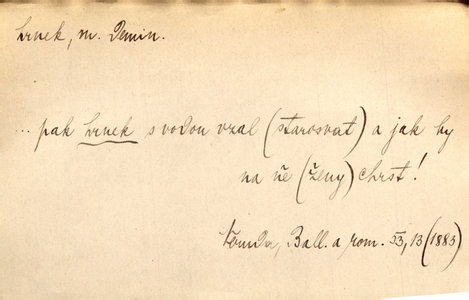 hrnek, m. Demin.
... pak hrnek s vodou vzal (starosvat) a jak by
na ně (ženy) chrst!
Neruda, Ball. a rom. 53, 13 (1883)